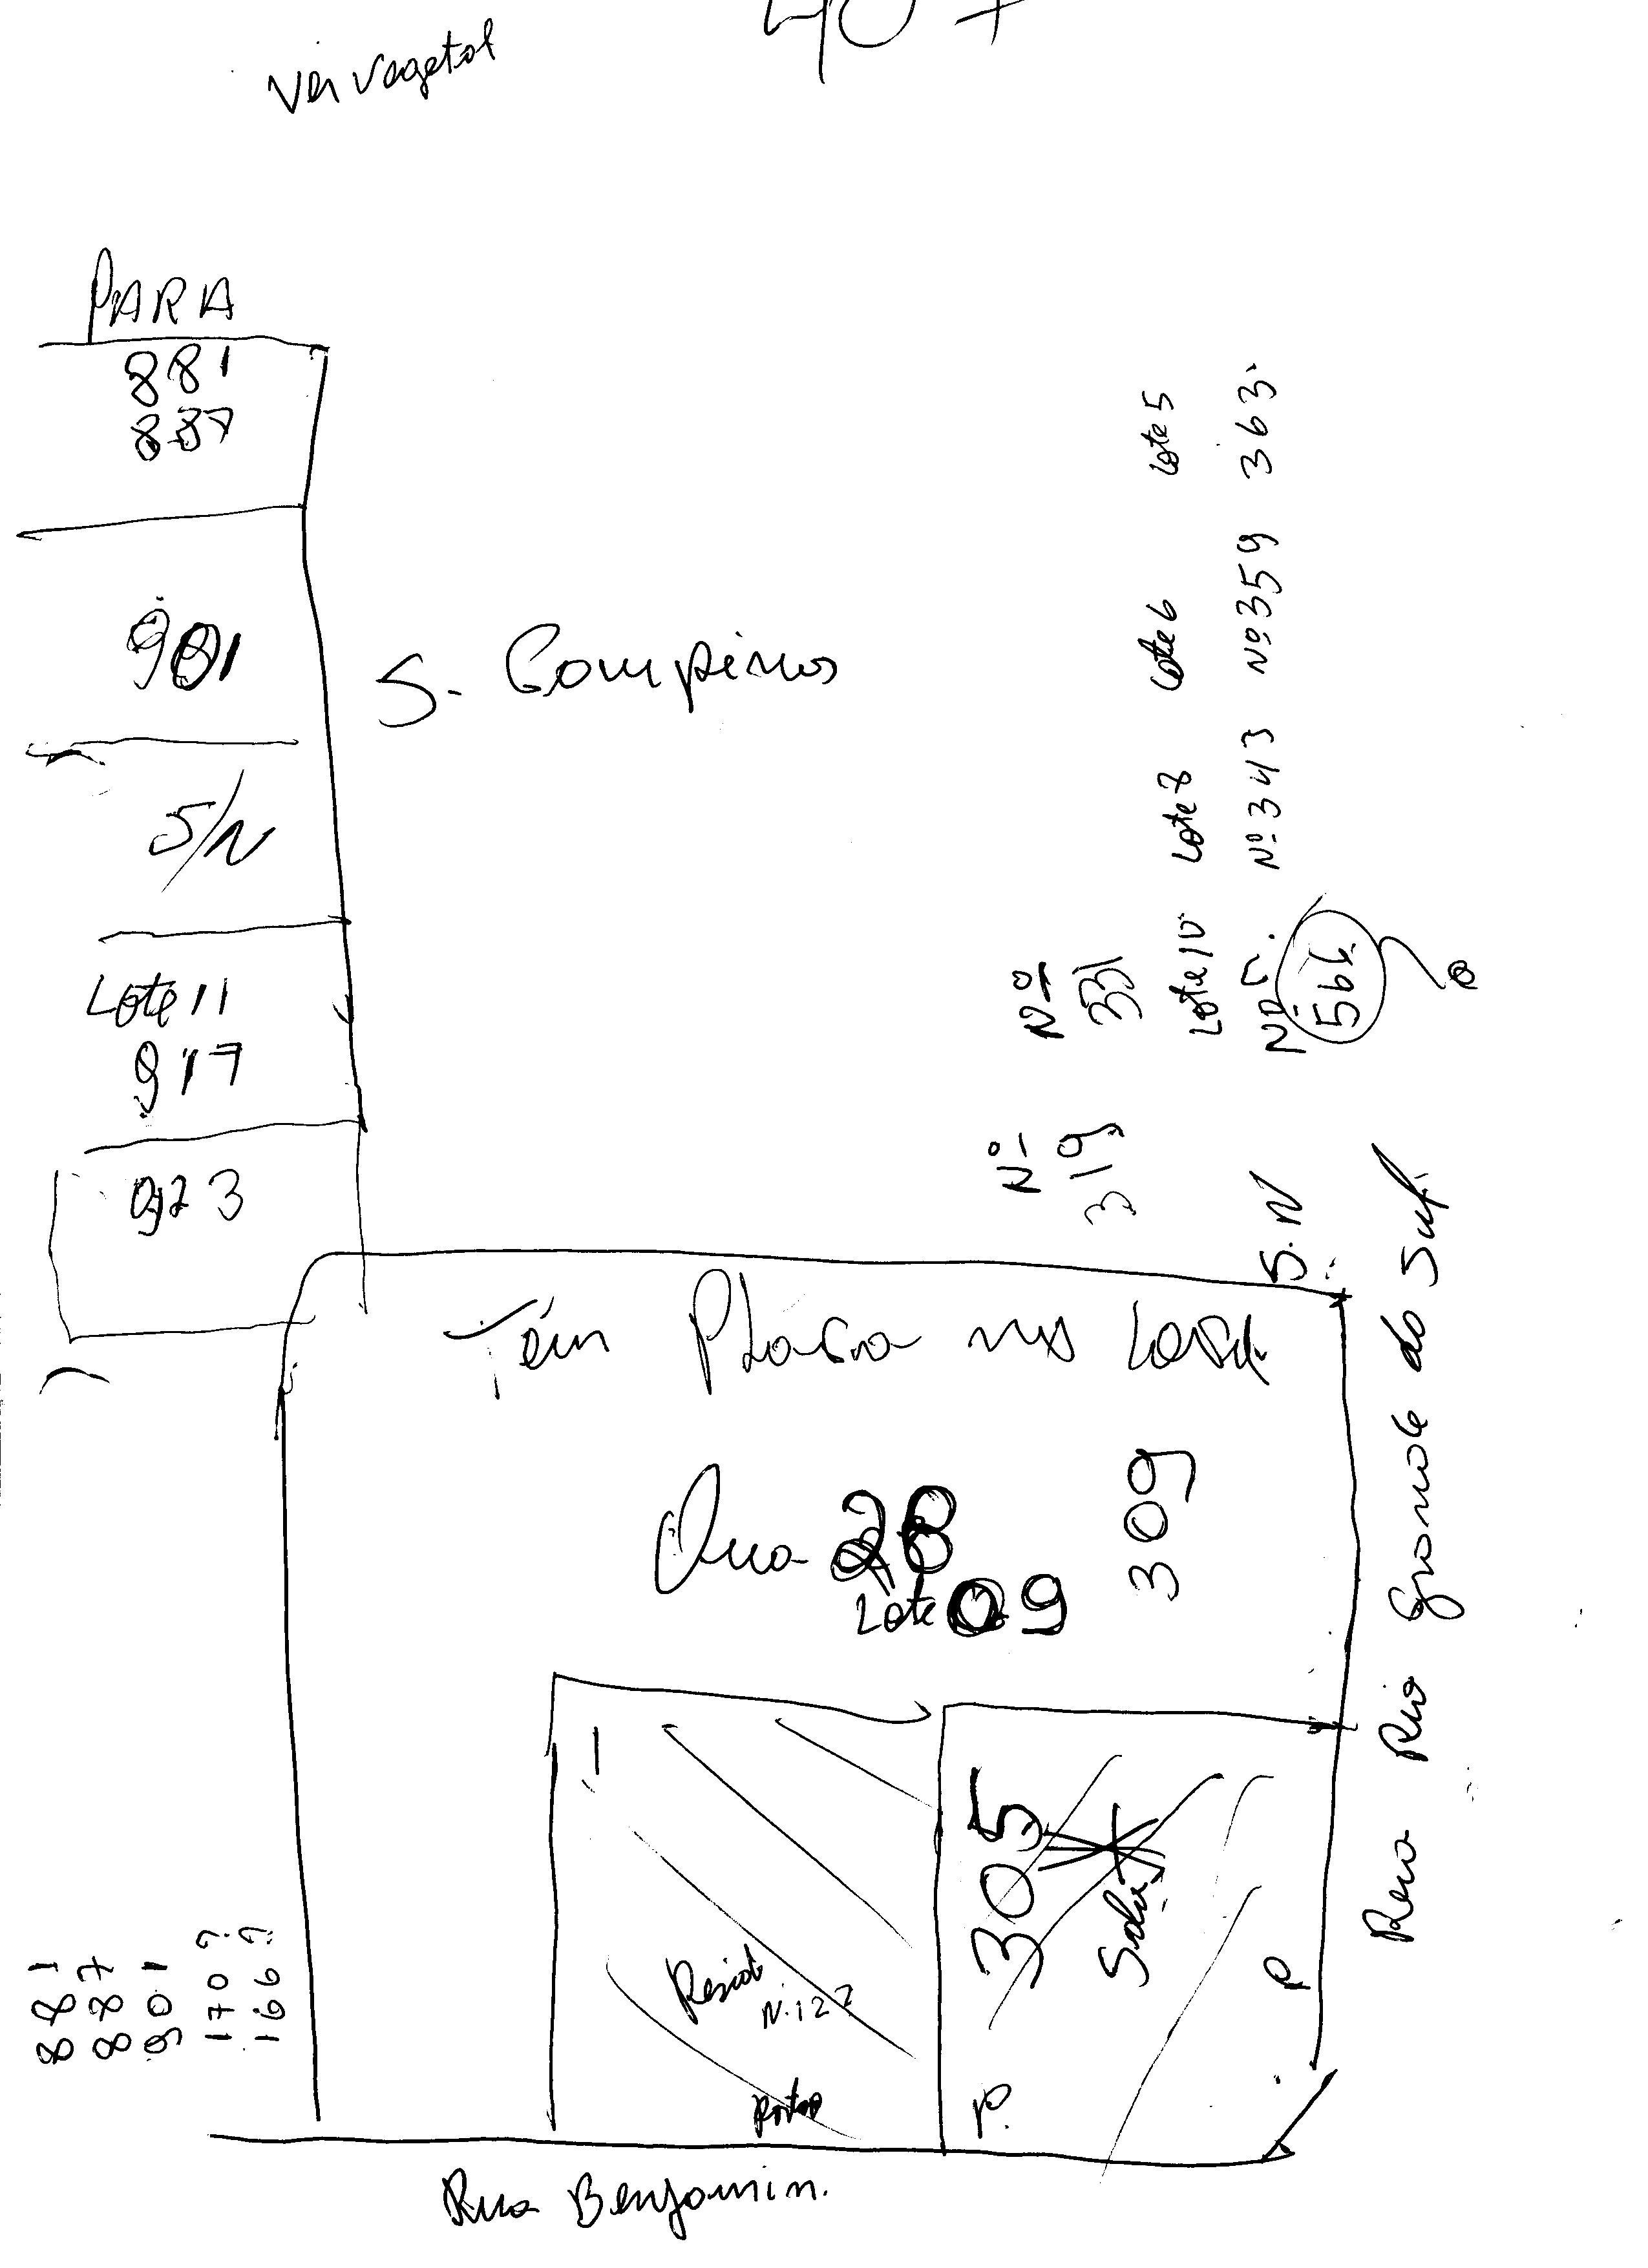 407
Ver Vegetal
PARA
881
887
901
S. Campinas
S/N
Lote 11
917
923
Lote 5
363
Lote 6
Nº 359
Lote 7
Nº 343
Lote 10
Nº
Nº
331
Nº
319
S.N
Tem Placa no Local
Qua 28
Lote 09
309
Rua Rio Grande do Sul
305
Resid
N. 127
Portão
P.
P
881
887
901
170?
166?
Rua Benjamin.